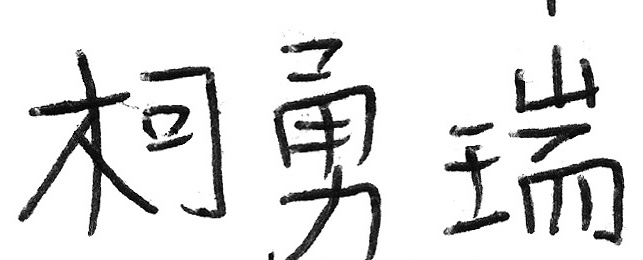 柯勇瑞